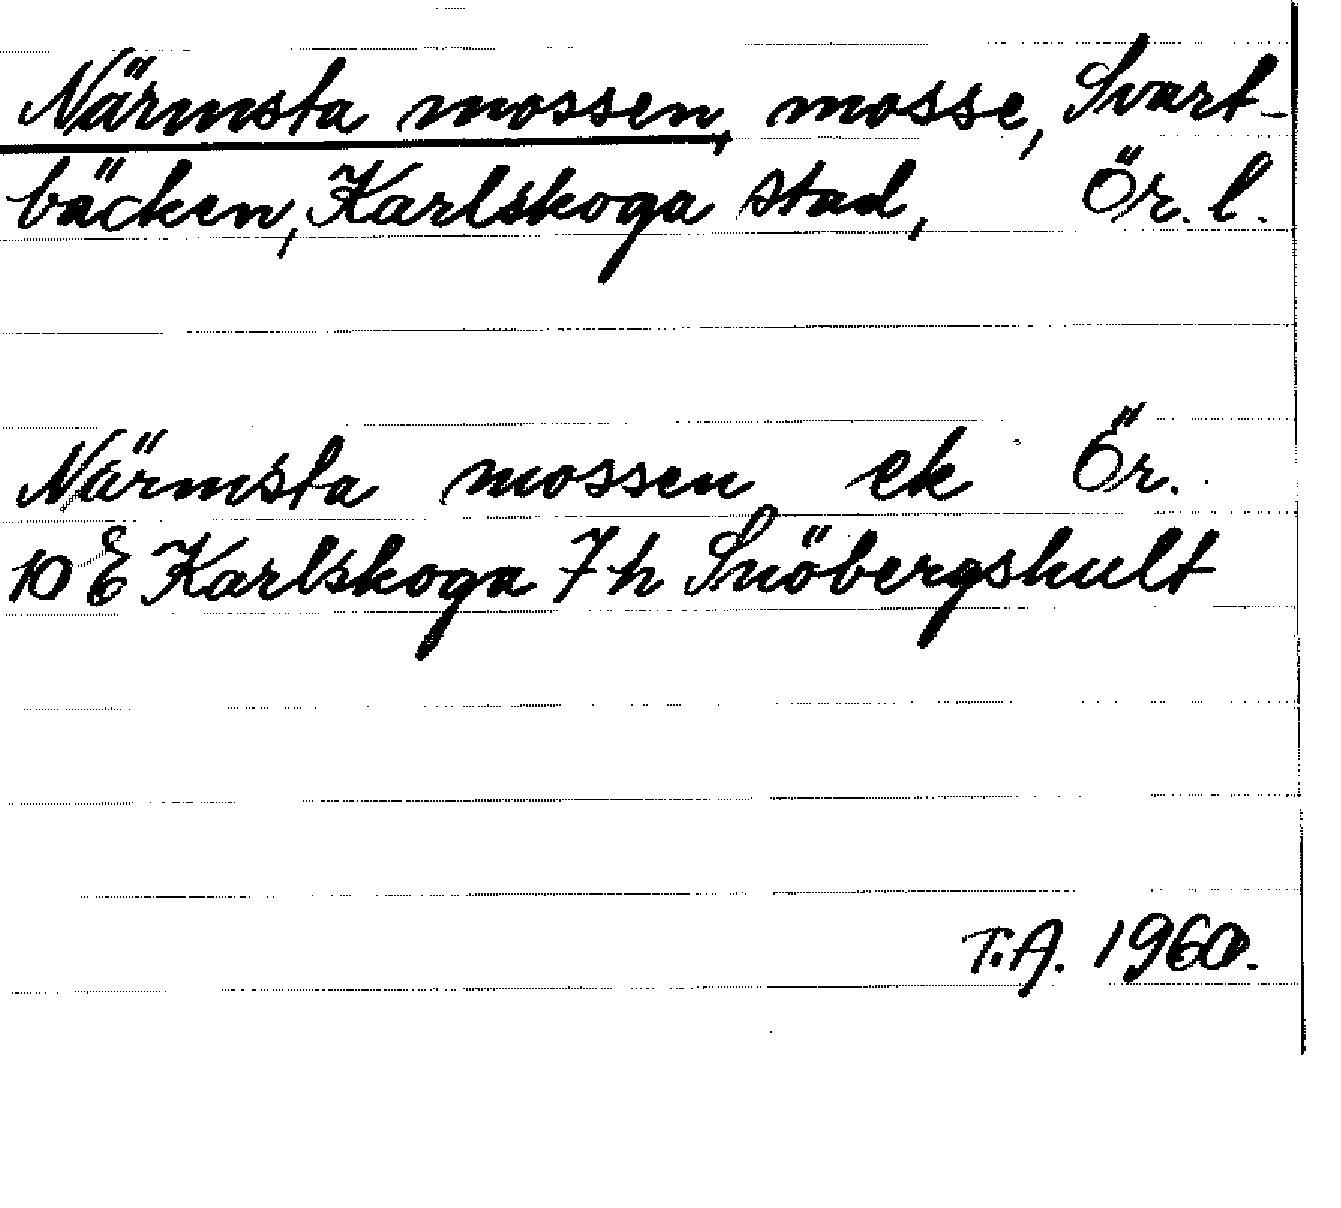 Närmsta mossen, mosse, Svart-
bäcken, Karlskoga stad, Ör. l.
Närmsta mossen ek Ör.
10 E Karlskoga 7h Snöbergshult
T.A. 1960.